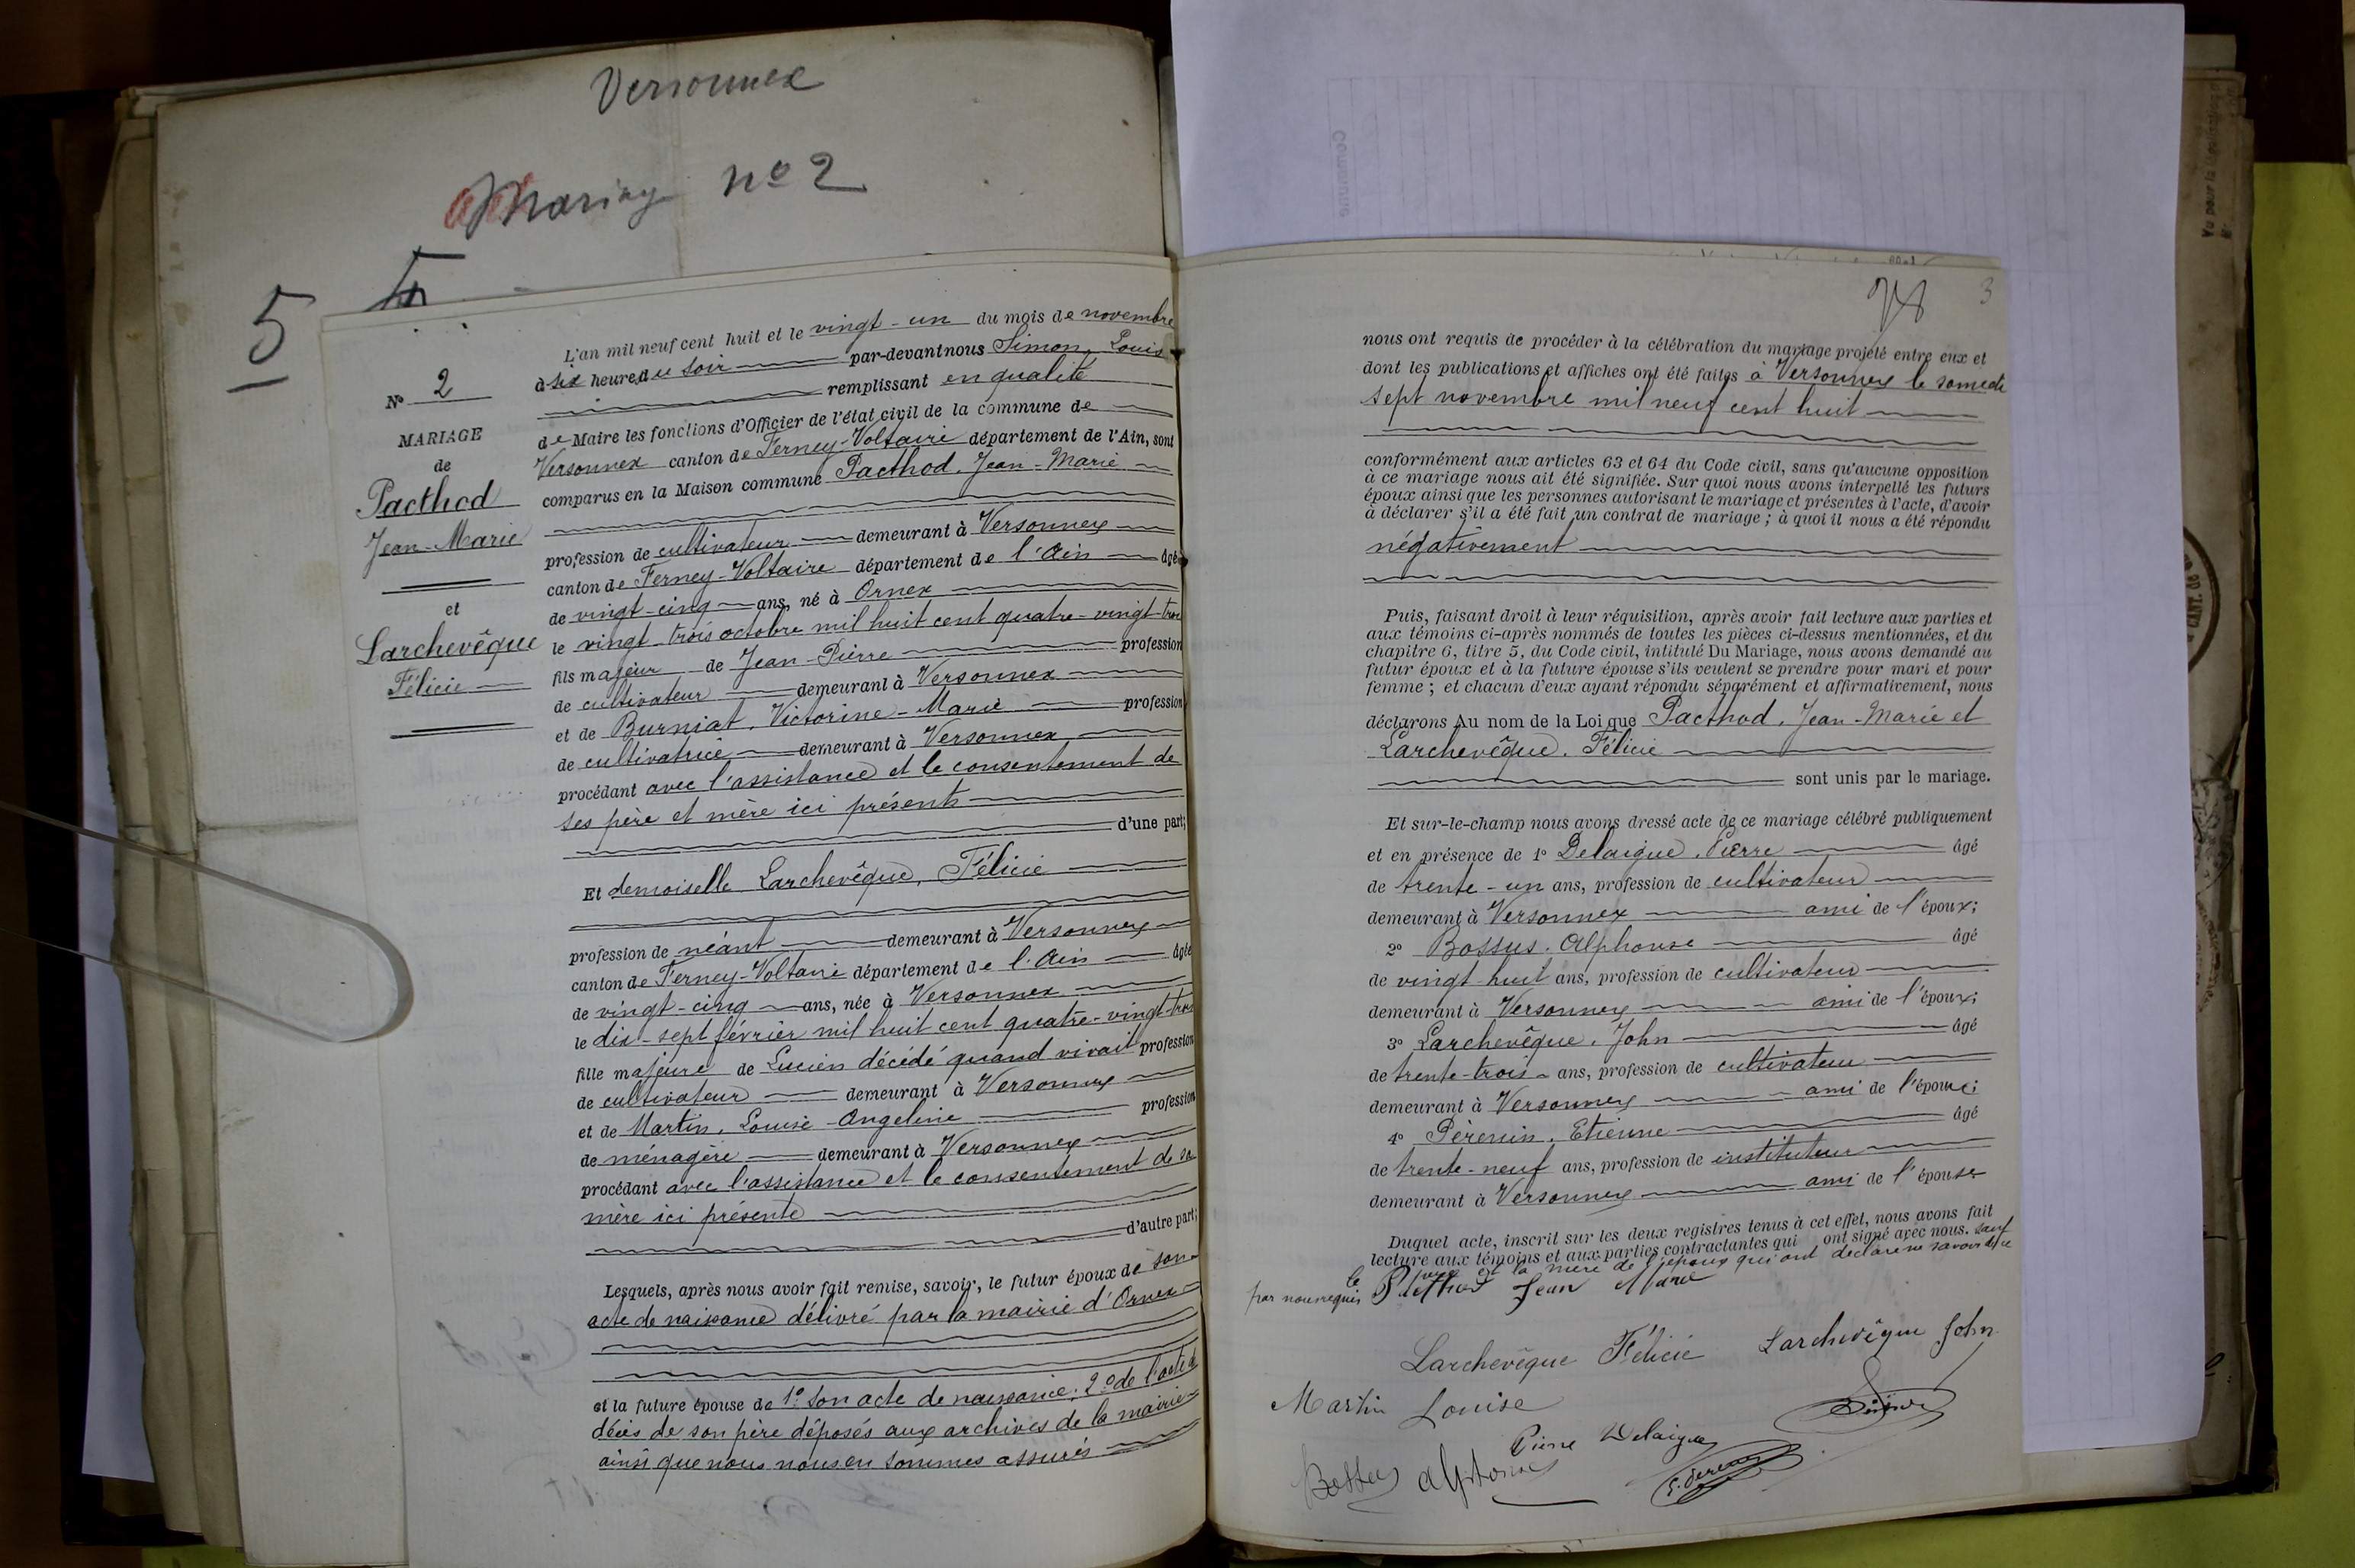 Versonnex
Mariag no 2
5
No 2
MARIAGE
de
Pacthod
Jean-Marie
et
Larchevêque
Félicie
L'an mil neuf cent huit et le vingt-un du mois de novembre
à six heures du soir par-devant nous Simon, Louis
remplissant en qualité
de Maire les fonctions d'Officier de l'état civil de la commune de
Versonnex canton de Ferney-Voltaire département de l'Ain, sont
comparus en la Maison commune Pacthod, Jean-Marie
profession de cultivateur demeurant à Versonnex
canton de Ferney-Voltaire département de l'Ain âgé
de vingt-cinq ans, né à Ornex
le vingt-trois octobre mil huit cent quatre-vingt-trois
fils majeur de Jean-Pierre profession
de cultivateur demeurant à Versonnex
et de Burniat, Victorine-Marie profession
de cultivatrice demeurant à Versonnex
procédant avec l'assistance et le consentement de
ses père et mère ici présents
d'une part;
Et demoiselle Larchevêque, Félicie
profession de néant demeurant à Versonnex
canton de Ferney-Voltaire département de l'Ain âgée
de vingt-cinq ans, née à Versonnex
le dix-sept février mil huit cent quatre-vingt-trois
fille majeure de Lucien décédé quand vivait profession
de cultivateur demeurant à Versonnex
et de Martin, Louise-Angeline profession
de ménagère demeurant à Versonnex
procédant avec l'assistance et le consentement de sa
mère ici présente
d'autre part;
Lesquels, après nous avoir fait remise, savoir, le futur époux de son
acte de naissance délivré par la mairie d'Ornex
et la future épouse de 1° son acte de naissance; 2° de l'acte de
décès de son père déposés aux archives de la mairie
ainsi que nous nous en sommes assurés
3
nous ont requis de procéder à la célébration du mariage projeté entre eux et
dont les publications et affiches ont été faites à Versonnex le samedi
sept novembre mil neuf cent huit
conformément aux articles 63 et 64 du Code civil, sans qu'aucune opposition
à ce mariage nous ait été signifiée. Sur quoi nous avons interpellé les futurs
époux ainsi que les personnes autorisant le mariage et présentes à l'acte, d'avoir
à déclarer s'il a été fait un contrat de mariage; à quoi il nous a été répondu
négativement
Puis, faisant droit à leur réquisition, après avoir fait lecture aux parties et
aux témoins ci-après nommés de toutes les pièces ci-dessus mentionnées, et du
chapitre 6, titre 5, du Code civil, intitulé Du Mariage, nous avons demandé au
futur époux et à la future épouse s'ils veulent se prendre pour mari et pour
femme; et chacun d'eux ayant répondu séparément et affirmativement, nous
déclarons Au nom de la Loi que Pacthod, Jean-Marie et
Larchevêque, Félicie
sont unis par le mariage.
Et sur-le-champ nous avons dressé acte de ce mariage célébré publiquement
et en présence de 1° Delaigue, Pierre âgé
de trente-un ans, profession de cultivateur
demeurant à Versonnex ami de l'époux;
2° Bossus, Alphonse âgé
de vingt-huit ans, profession de cultivateur
demeurant à Versonnex ami de l'époux;
3° Larchevêque, John âgé
de trente-trois ans, profession de cultivateur
demeurant à Versonnex ami de l'épouse;
4° Pérenin, Etienne âgé
de trente-neuf ans, profession de instituteur
demeurant à Versonnex ami de l'épouse
Duquel acte, inscrit sur les deux registres tenus à cet effet, nous avons fait
lecture aux témoins et aux parties contractantes qui ont signé avec nous. sauf
le père et la mère de l'époux qui ont déclaré ne savoir
par nous requis Pacthod Jean Marie
Larchevêque Félicie Larchevêque John
Martin Louise
Pierre Delaigue
Bossus Alphonse